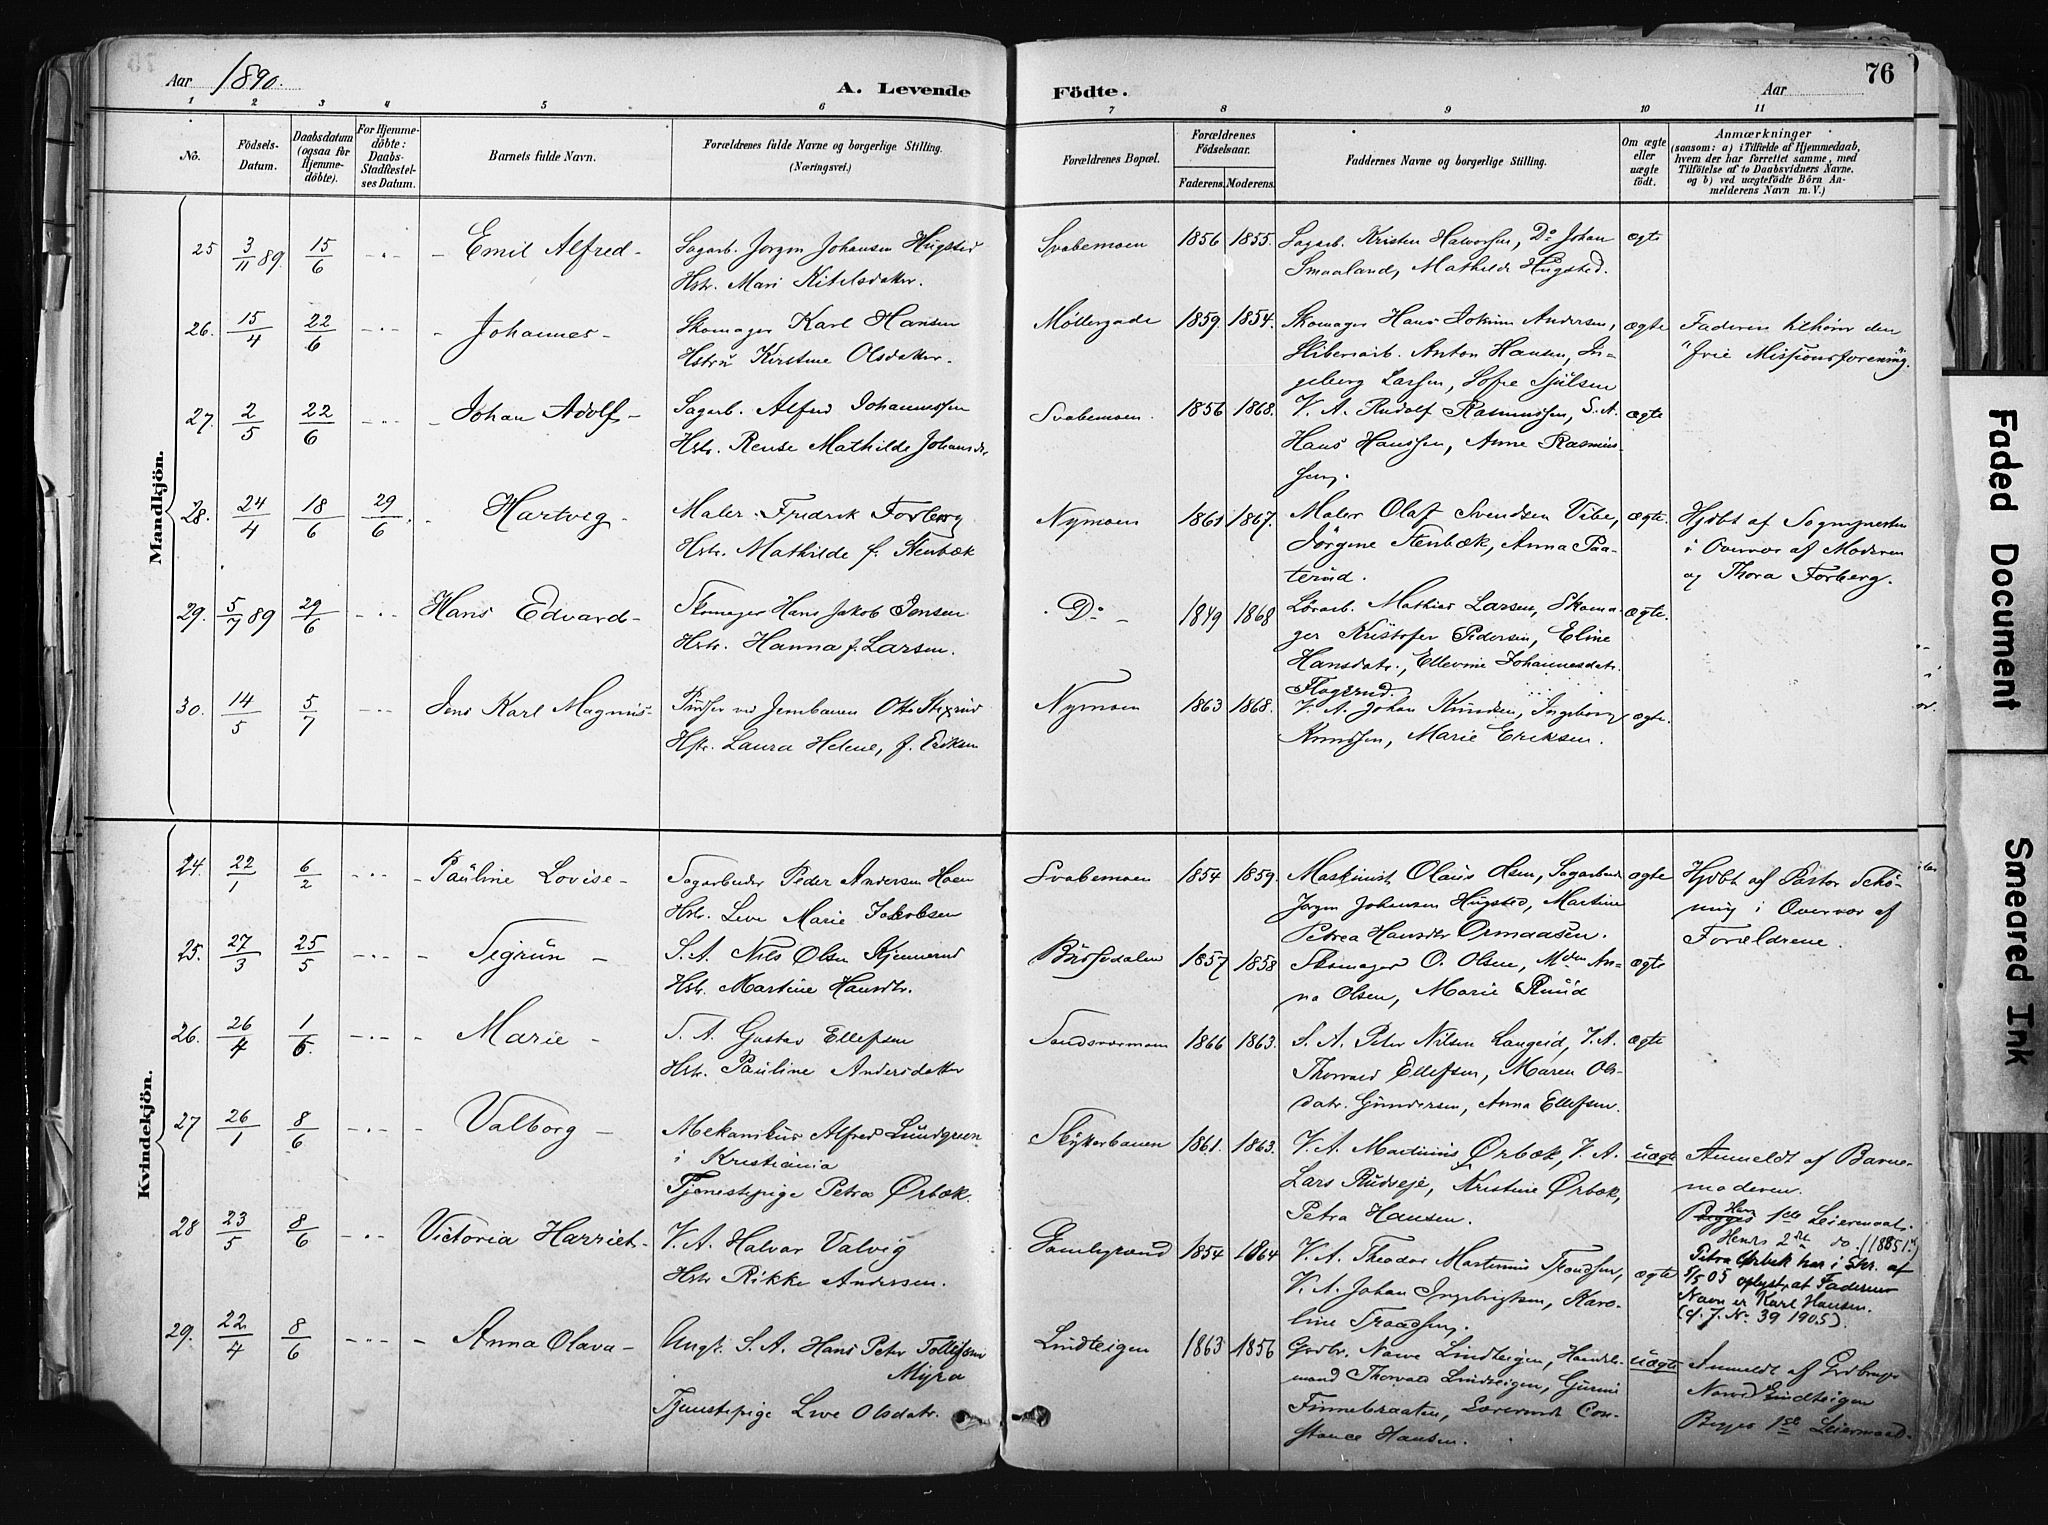 Aar 1890.
A. Levende Födte.
76
Aar
1 2 3 4 5 6 7 8 9 10 11
No.
Födsels-Datum.
Daabsdatum (ogsaa for Hjemmedöbte).
For Hjemmedöbte: Daabs-Stadfæstelses Datum.
Barnets fulde Navn.
Forældrenes fulde Navne og borgerlige Stilling.
(Næringsvei.)
Forældrenes Bopæl.
Forældrenes Födselsaar.
Faderens. Moderens.
Faddernes Navne og borgerlige Stilling.
Om ægte eller uægte födt.
Anmærkninger
(saasom: a) i Tilfælde af Hjemmedaab,
hvem der har forrettet samme, med
Tilföielse af to Daabsvidners Navne,
og b) ved uægtefödte Börn An-
melderens Navn m. V.)
Mandkjön.
25 3/11 89. 15/6 Emil Alfred - Sagarb. Jørgen Johansen Hugsted Svabemoen 1856 1855. Sagarb. Kristen Halvorsen, Do Johan ægte
Hstr. Mari Kitelsdatter. Smaaland, Mathilde Hugsted.
26. 15/4 22/6 Johannes - Skomager Karl Hansen Møllergade 1859 1854. Skomager Hans Jokum Andersen, ægte Faderen tilhører den
Hstru Kirstine Olsdatter. Sliberiarb. Anton Hansen, In- "frie Missionsforening".
geborg Larsen, Sofie
27. 2/5 22/6 Johan Adolf - Sagarb. Alfred Johannessen Svabemoen. 1856 1868. V. A. Rudolf Rasmussen, S. A. ægte
Hstr. Mathilde Johansdr. Hans Hanssen, Anne Rasmus-
sen.
28. 24/4 18/6 29/6 Hartvig - Maler Fredrik Forberg Nymoen 1861 1867. Maler Olaf Svendsen Vibe, ægte. Hjdbt af Sognepresten
Hstr. Mathilde f. Stenbæk Jørgine Stenbæk, Anna Paa- i Overvær af Moderen
terud. og Thora Forberg.
29. 5/7 89 29/6 Hans Edvard - Skomager Hans Jakob Jensen Do - 1849 1868 Mathias Larsen, Skoma- ægte.
Hstr. Hanna f. Larsen. ger Kristofer Pedersen, Eline
Hansdatr., Ellevine Johannesdatr.
30. 14/5 5/7 Jens Karl Magnus - Pudser ved Jernbanen Otto Stixrud Nymoen 1863 1868. V. A. Johan Knudsen, Ingeborg ægte.
Hstr. Laura Helene, f. Eriksen Knudsen, Marie Eriksen.
Kvindekjön.
24. 22/1 6/2 Pauline Lovise - Sagarbeider Peder Andersen Moen Svabemoen 1854 1859. Maskinist Olaus Olsen, Sagarbeider ægte Hjdbt af Pastor Schø-
Hstr. Live Marie Jakobsen Jørgen Johansen Hugsted, Martine ning i Overvær af
Petrea Hansdtr Ormaasen. Forældrene.
25. 27/3 25/5 Sigrun - S. A. Nils Olsen Kjennerud 1857 1858 Skomager O. Olsen, Mdm An- ægte
Hstr. Martine Hansdtr. na Olsen, Marie Ruud
26. 26/4 1/6. Marie - S. A. Gustav Ellefsen Sandsværmoen 1866 1863. S. A. Peter Nilsen Langeid, V. A. ægte
Hstr. Pauline Andersdatter Thorvald Ellefsen, Maren Ols-
datr. Gundersen, Anna Ellefsen.
27 26/1 8/6 Valborg - Mekanikus Alfred Lundgreen Stykerbanen 1861. 1863. V. A. Martinius Ørbæk, V. A. uægte Anmeldt af Barne-
i Kristiania Lars Rudseje, Kristine Ørbæk, moderen.
Tjenestepige Petra Ørbæk. Petra Hansen. Begges Hans 1ste Leiermaal.
Hendes 2det do. (1885 I.)
28 23/5 8/6 Victoria Harriet - V. A. Halvor Valvig Gamlegrænd 1854 1864 V. A. Theodor Martinius Trondsen, ægte Petra Ørbek har i Skr. af
Hstr Rikke Andersen. V. A. Johan Ingebrigtsen, Karo- 5/5 05 oplyst, at Faderens
line Trondsen. Navn er Karl Hansen.
(cf. J. No. 39 1905).
29. 22/4 8/6 Anna Olava - Ungk. S. A. Hans Peter Tollefsen Lindteigen 1863 1856 Grdbr. Narve Lindteigen, Handels- uægte Anmeldt af Grdbruger
Myra mand Thorvald Lindteigen, Gunni Narve Lindteigen
Tjenestepige Live Olsdatr. Finnebraaten, Lærerinde Con- Begges 1ste Leiermaal.
stance Hansen.
Faded Document
Smeared Ink